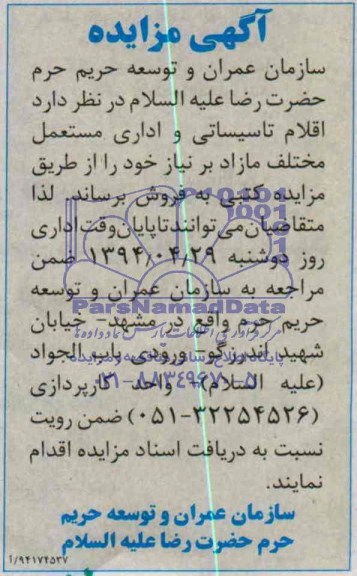 آگهی مزایده
سازمان عمران و توسعه حریم حرم
حضرت رضا علیه السلام در نظر دارد
اقلام تاسیساتی و اداری مستعمل
مختلف مازاد بر نیاز خود را از طریق
مزایده کتبی به فروش برساند. لذا
متقاضیان می توانند تا پایان وقت اداری
روز دوشنبه ۱۳۹۴/۰۴/۲۹ ضمن
مراجعه به سازمان عمران و توسعه
ParsNamadData
حریم حرم واقع در مشهد- خیابان
شهید اندرزگو- ورودی باب الجواد
(علیه السلام)- واحد کارپردازی
۰۲۱-۸۸۳۴۹۶۷۰-۵
(۰۵۱-۳۲۲۵۴۵۲۶) ضمن رویت
نسبت به دریافت اسناد مزایده اقدام
نمایند.
سازمان عمران و توسعه حریم
حرم حضرت رضا علیه السلام
۱/۹۴۱۷۴۵۳۷